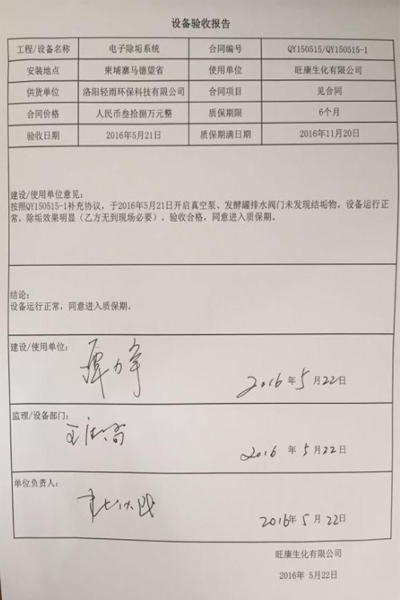 设备验收报告
工程/设备名称 电子除垢系统 合同编号 QY150515/QY150515-1
安装地点 柬埔寨马德望省 使用单位 旺康生化有限公司
供货单位 洛阳轻雨环保科技有限公司 合同项目 见合同
合同价格 人民币叁拾捌万元整 质保期限 6个月
验收日期 2016年5月21日 质保期满日期 2016年11月20日
建设/使用单位意见:
按照QY150515-1补充协议，于2016年5月21日开启真空泵、发酵罐排水阀门未发现结垢物，设备运行正
常，除垢效果明显（乙方无到现场必要）。验收合格，同意进入质保期。
结论:
设备运行正常，同意进入质保期。
建设/使用单位:
2016 年 5 月 22 日
监理/设备部门:
2016 年 5 月 22 日
单位负责人:
2016 年 5 月 22 日
旺康生化有限公司
2016年 5月22日